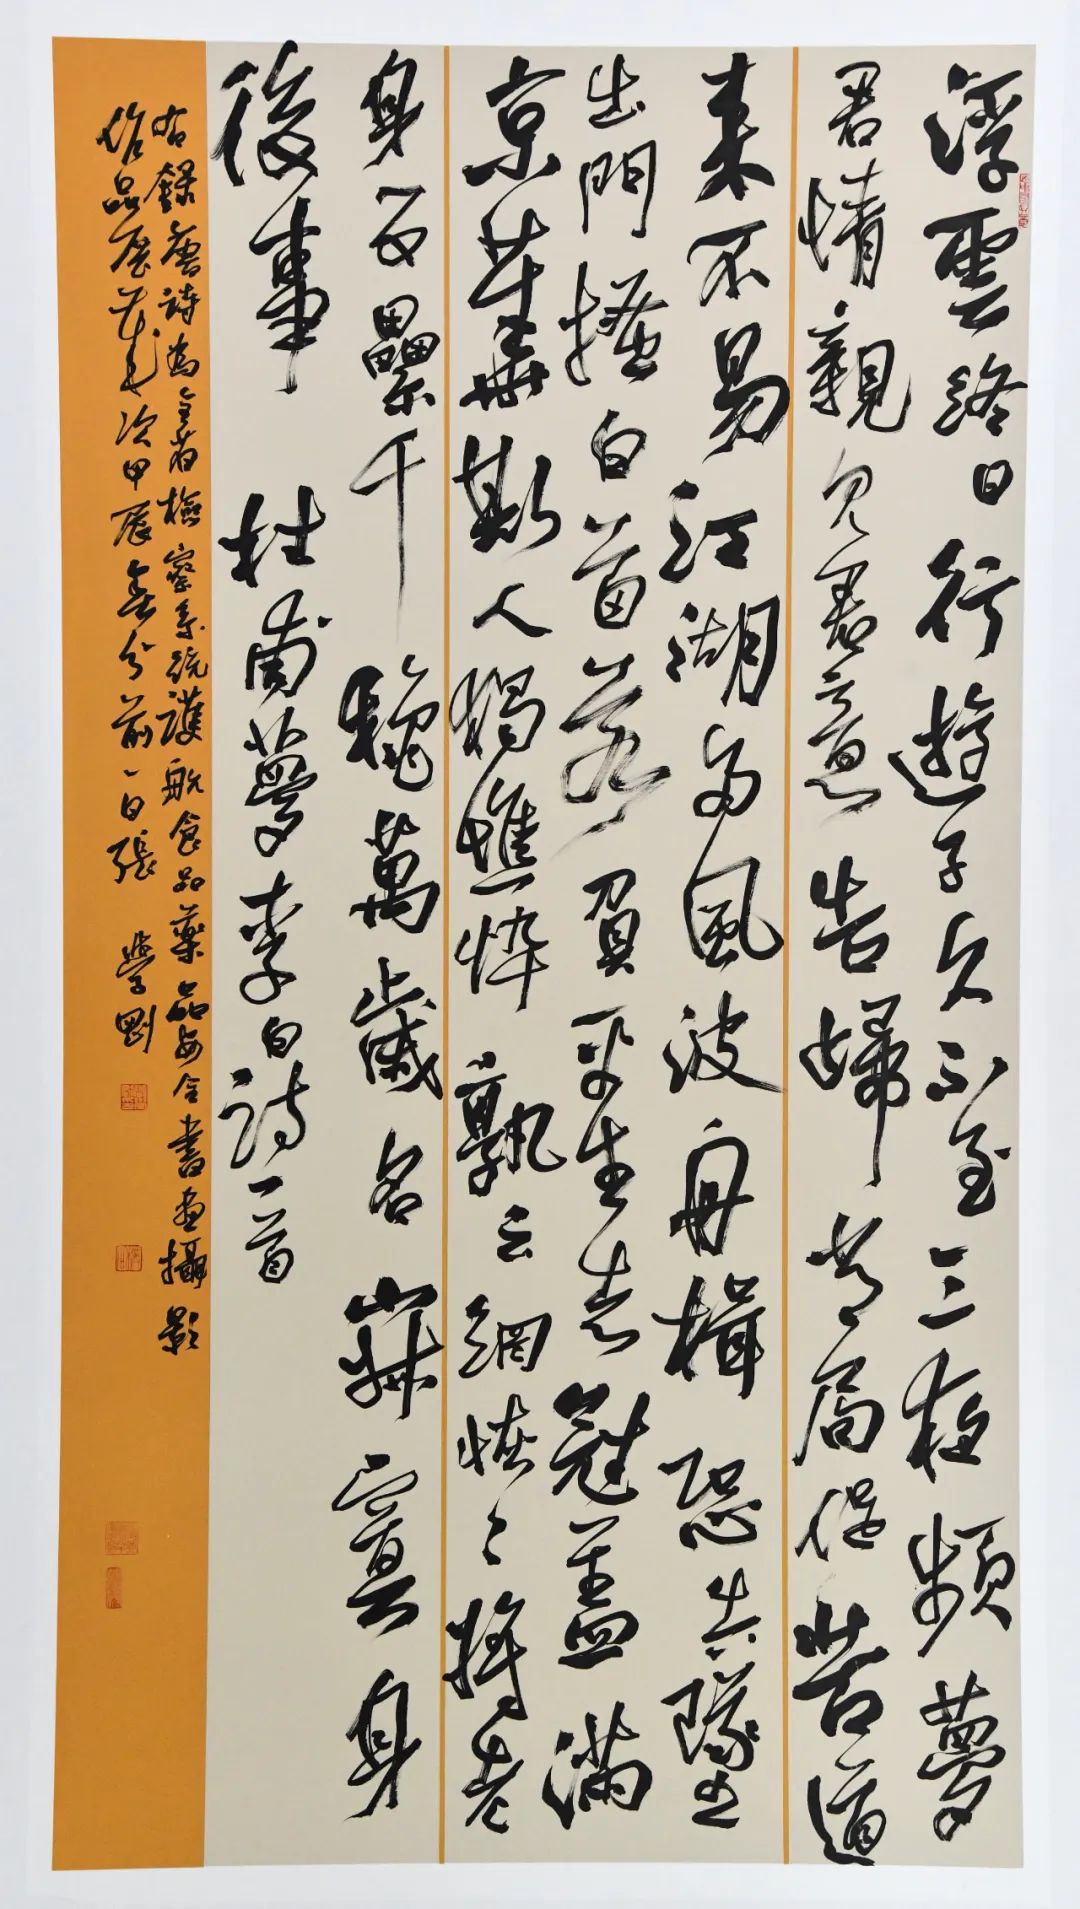 浮雲終日行遊子久不至三夜頻夢
君情親見君意告歸常局促苦道
来不易江湖多風波舟楫恐失墜
出門搔白首若負平生志冠蓋滿
京華斯人獨憔悴孰云網恢〻將老
身反纍千穐萬歲名寂寞身
後事 杜甫夢李白詩一首
右録唐詩為全省檢察系統護航食品藥品安全書畫攝影
作品展歲次甲辰春分前一日張學剛